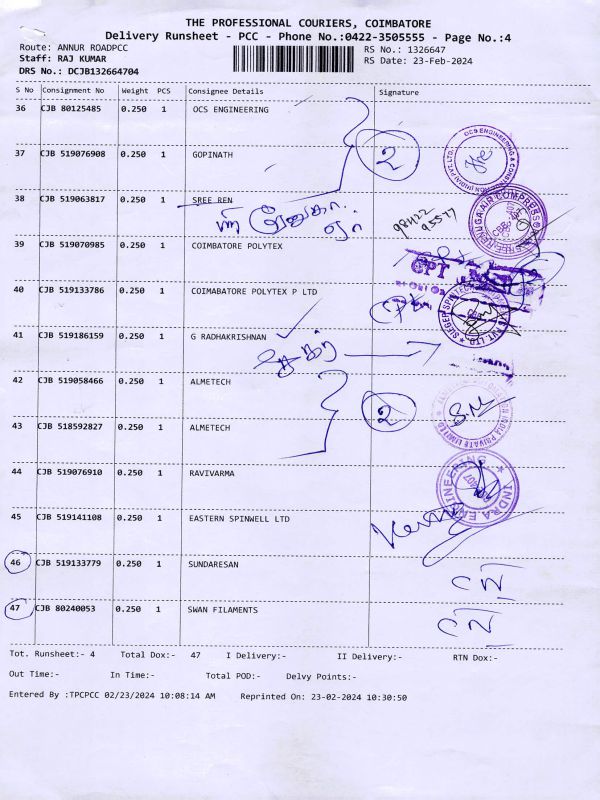 THE PROFESSIONAL COURIERS, COIMBATORE
Delivery Runsheet - PCC - Phone No.:0422-3505555 - Page No.:4
Route: ANNUR ROADPCC
RS No.: 1326647
Staff: RAJ KUMAR
RS Date: 23-Feb-2024
DRS No.: DCJB132664704
S No Consignment No Weight PCS Consignee Details Signature
36 CJB 80125485 0.250 1 OCS ENGINEERING
37 CJB 519076908 0.250 1 GOPINATH
2
38 CJB 519063817 0.250 1 SREE REN
98422
95577
39 CJB 519070985 0.250 1 COIMBATORE POLYTEX
CPT
40 CJB 519133786 0.250 1 COIMABATORE POLYTEX P LTD
41 CJB 519186159 0.250 1 G RADHAKRISHNAN
42 CJB 519058466 0.250 1 ALMETECH
2
S.M
43 CJB 518592827 0.250 1 ALMETECH
44 CJB 519076910 0.250 1 RAVIVARMA
INDRA ENGINEERING
45 CJB 519141108 0.250 1 EASTERN SPINWELL LTD
46 CJB 519133779 0.250 1 SUNDARESAN
47 CJB 80240053 0.250 1 SWAN FILAMENTS
Tot. Runsheet:- 4 Total Dox:- 47 I Delivery:- II Delivery:- RTN Dox:-
Out Time:- In Time:- Total POD:- Delvy Points:-
Entered By :TPCPCC 02/23/2024 10:08:14 AM Reprinted On: 23-02-2024 10:30:50